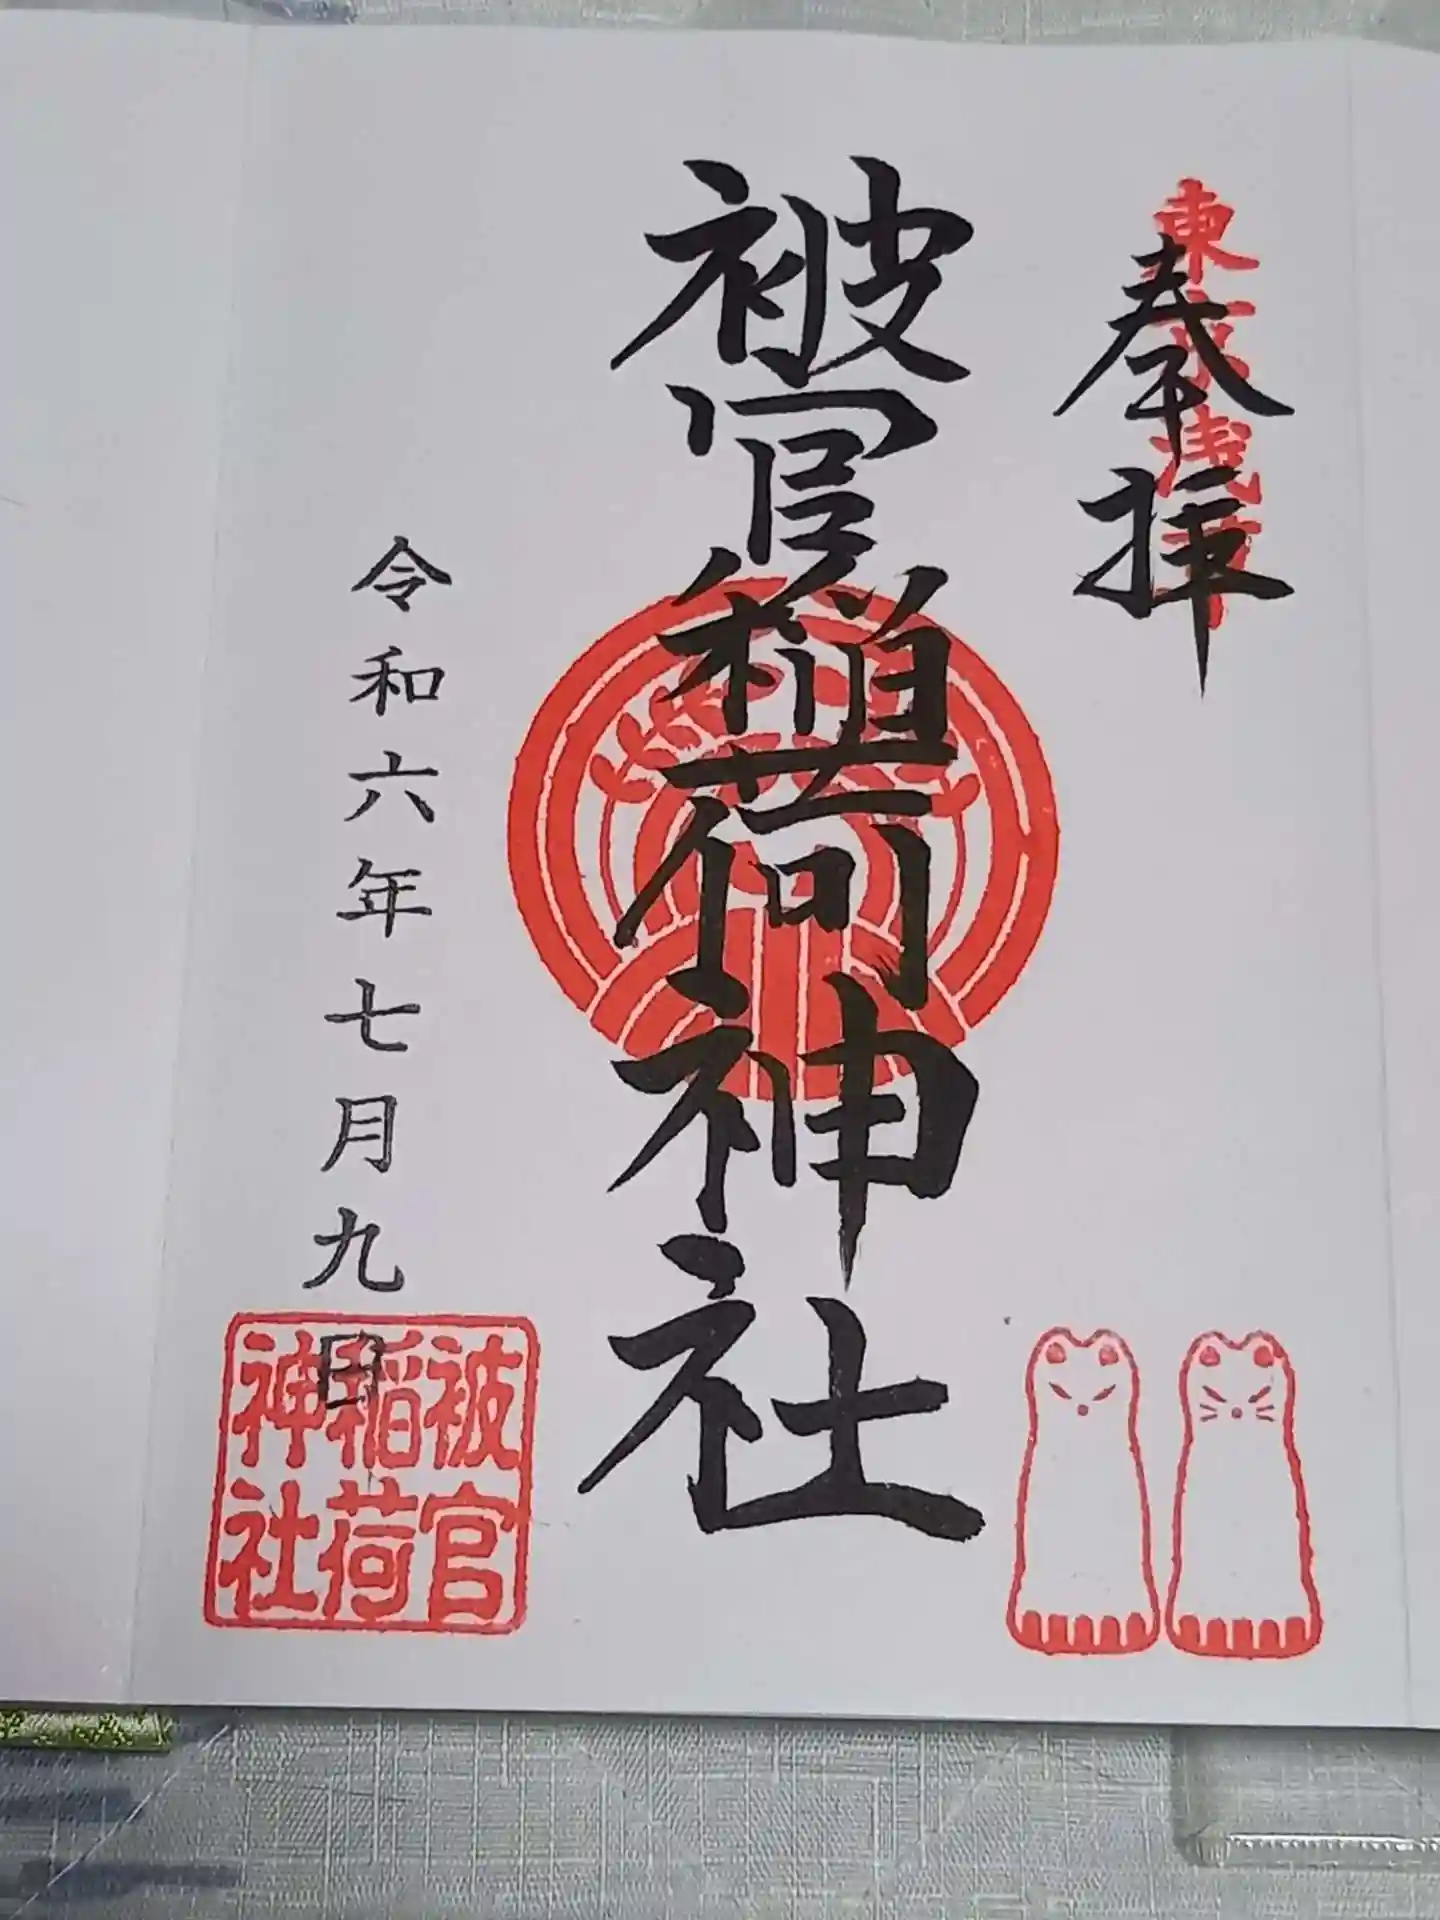 東京浅草
奉拝
被官稲荷神社
令和六年七月九日
被官
稲荷
神社